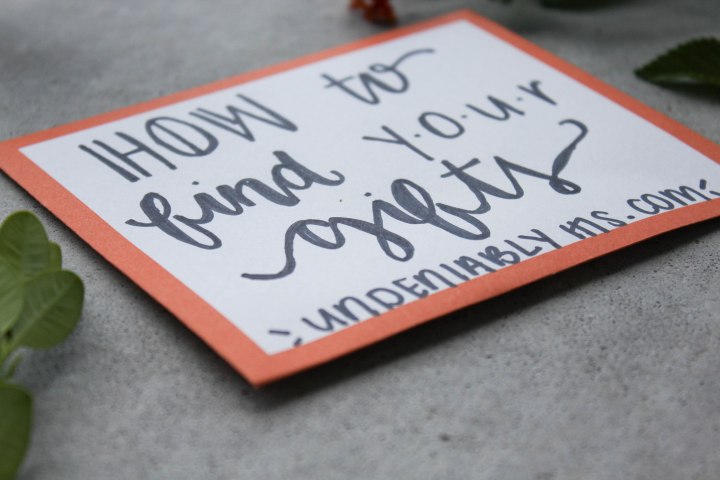 HOW to
find Y.O.U.r
gifts
UNDENIABLY HIS.COM